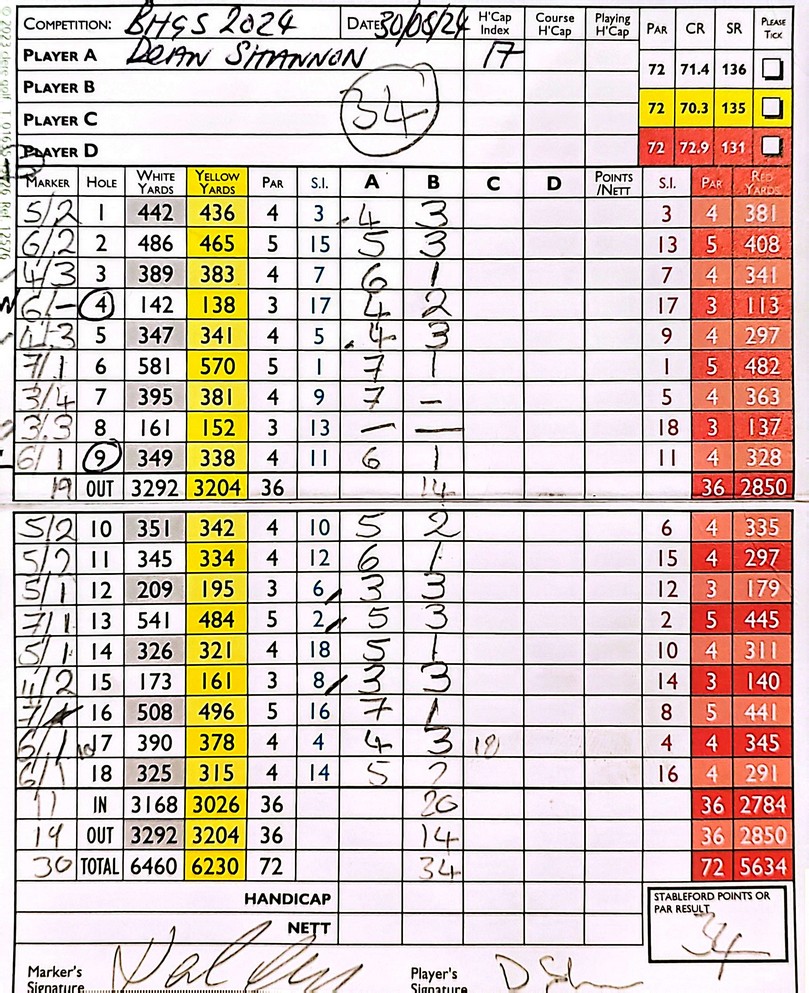 COMPETITION: BHGS 2024 DATE 30/06/24 H'Cap Index Course H'Cap Playing H'Cap PAR CR SR PLEASE TICK
PLAYER A DEAN SHANNON 17 72 71.4 136
PLAYER B
34
PLAYER C 72 70.3 135
PLAYER D 72 72.9 131
MARKER HOLE WHITE YARDS YELLOW YARDS PAR S.I. A B C D POINTS /NETT S.I. PAR RED YARDS
5/2 1 442 436 4 3 4 3 3 4 381
6/2 2 486 465 5 15 5 3 13 5 408
4/3 3 389 383 4 7 6 1 7 4 341
6/- 4 142 138 3 17 4 2 17 3 113
4/3 5 347 341 4 5 4 3 9 4 297
7/1 6 581 570 5 1 7 1 1 5 482
3/4 7 395 381 4 9 7 - 5 4 363
3/3 8 161 152 3 13 - - 18 3 137
6/1 9 349 338 4 11 6 1 11 4 328
19 OUT 3292 3204 36 14 36 2850
5/2 10 351 342 4 10 5 2 6 4 335
5/2 11 345 334 4 12 6 1 15 4 297
5/1 12 209 195 3 6 3 3 12 3 179
7/1 13 541 484 5 2 5 3 2 5 445
5/1 14 326 321 4 18 5 1 10 4 311
4/2 15 173 161 3 8 3 3 14 3 140
7/1 16 508 496 5 16 7 1 8 5 441
6/1 17 390 378 4 4 4 3 18 4 4 345
6/1 18 325 315 4 14 5 2 16 4 291
11 IN 3168 3026 36 20 36 2784
19 OUT 3292 3204 36 14 36 2850
30 TOTAL 6460 6230 72 34 72 5634
HANDICAP
NETT
STABLEFORD POINTS OR PAR RESULT
34
Marker's Signature
Player's Signature